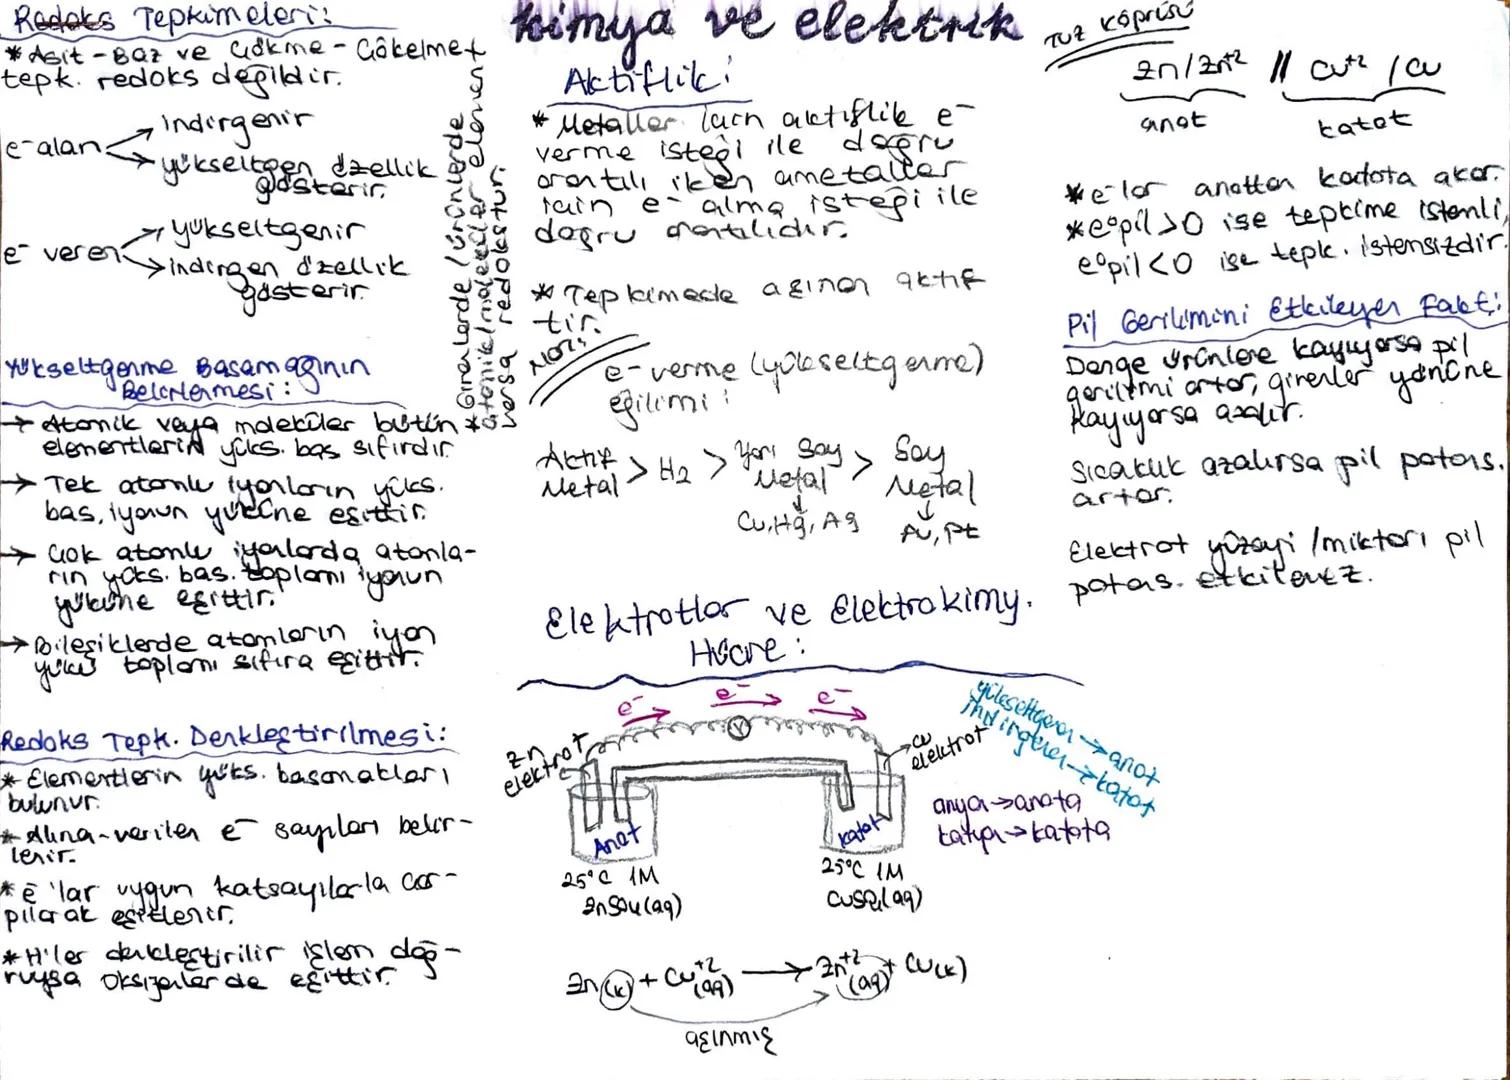 kimya ve elektrik
Redoks Tepkimeleri:
* Asit - Baz ve Çökme - Çökelme
tepk. redoks değildir.
e- alan → indirgenir
→ yükseltgen özellik
gösterir.
e- veren → yükseltgenir
→ indirgen özellik
gösterir.
* Girenlerde / ürünlerde
atomik / moleküler element
varsa redokstur.
Yükseltgenme Basamağının
Belirlenmesi:
→ Atomik veya moleküler bütün
elementlerin yüks. bas sıfırdır
→ Tek atomlu iyonların yüks.
bas, iyonun yüküne eşittir.
→ Çok atomlu iyonlarda atomla-
rın yüks. bas. toplamı iyonun
yüküne eşittir.
→ Bileşiklerde atomların iyon
yükü toplamı sıfıra eşittir.
Redoks Tepk. Denkleştirilmesi:
* Elementlerin yüks. basamakları
bulunur.
* Alına-verilen e- sayıları belir-
lenir.
* e-'lar uygun katsayılarla çar-
pılarak eşitlenir.
* H'ler denkleştirilir işlem doğ-
ruysa oksijenler de eşittir.
Aktiflik:
* Metaller için aktiflik e-
verme isteği ile doğru
orantılı iken ametaller
için e- alma isteği ile
doğru orantılıdır.
* Tepkimede aşınan aktif
tir.
NOT:
e- verme (yükseltgenme)
eğilimi:
Aktif Metal > H2 > Yarı Soy Metal > Soy Metal
↓ ↓
Cu, Hg, Ag Au, Pt
Elektrotlar ve Elektrokimy.
Hücre:
e- → e- → e- →
V
Zn
elektrot
Cu
elektrot
Anot
Katot
25°C 1M
ZnSO4(aq)
25°C 1M
CuSO4(aq)
yükseltgenen → anot
indirgenen → katot
anyon → anota
katyon → katota
Zn(k) + Cu+2(aq) → Zn+2(aq) + Cu(k)
aşınmış
Tuz köprüsü
Zn / Zn+2 // Cu+2 / Cu
anot katot
* e-lar anottan katota akar.
* e°pil > 0 ise tepkime istemli,
e°pil < 0 ise tepk. istemsizdir.
Pil Gerilimini Etkileyen Fakt:
Denge ürünlere kayıyorsa pil
gerilimi artar, girenler yönüne
kayıyorsa azalır.
Sıcaklık azalırsa pil potans.
artar.
Elektrot yüzeyi / miktarı pil
potans. etkilemez.